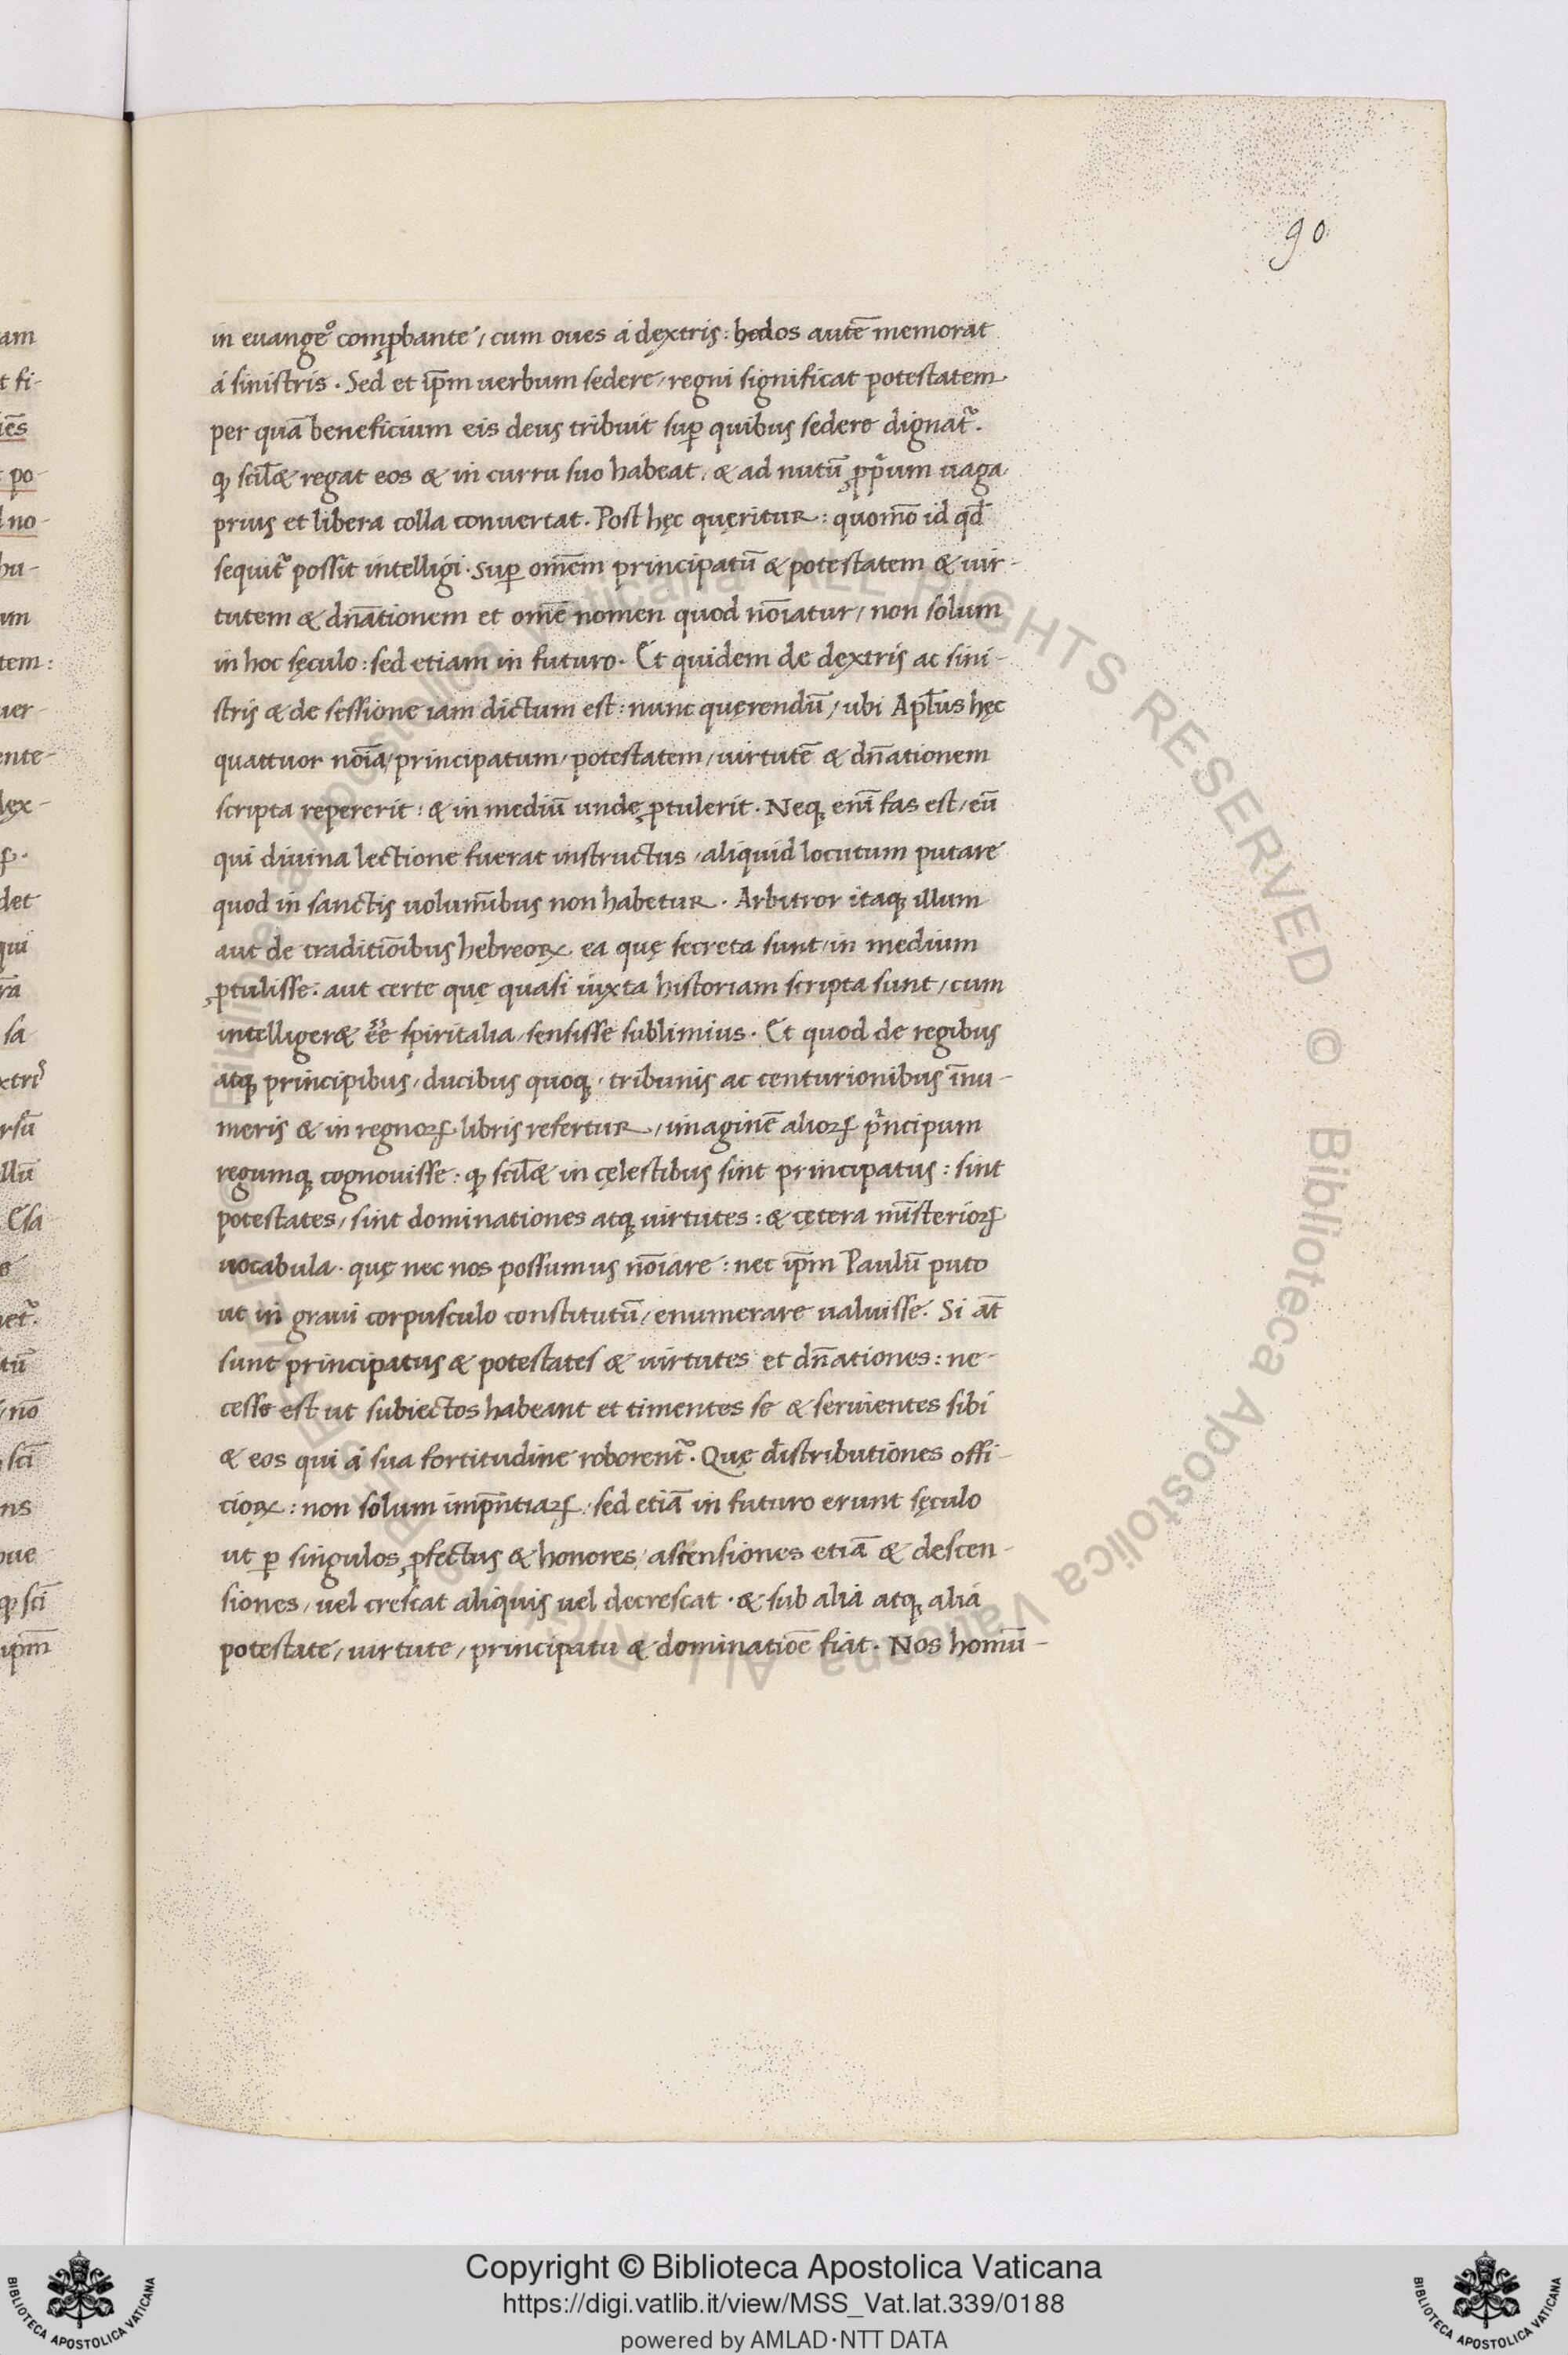 90
in euangeº comꝓbante, cum oues á dextris: hedos autē memorat
á sinistris. Sed et ip̄m uerbum sedere, regni significat potestatem
per quā beneficium eis deus tribuit suꝑ quibus sedere dignat᷑.
ꝙ scil& regat eos & in curru suo habeat, & ad nutū ꝓpͥum uaga
prius et libera colla conuertat. Post hęc quęritur: quomō id qd̄
sequit᷑ possit intelligi. Suꝑ om̄em principatū & potestatem & uir-
tutem & dn̄ationem et om̄e nomen quod nōiatur, non solum
in hoc sęculo: sed etiam in futuro. Et quidem de dextris ac sini-
stris & de sessione iam dictum est: nunc quęrendū, ubi Apl̄us hęc
quattuor nōia, principatum, potestatem, uirtutē & dn̄ationem
scripta repererit: & in mediū unde ꝓtulerit. Neq; eni᷑ fas est, eū
qui diuina lectione fuerat instructus, aliquid locutum putare
quod in sanctis uolumībus non habetur. Arbitror itaq; illum
aut de traditiōibus hebreoꝝ ea quę secreta sunt, in medium
ꝓtulisse: aut certe quę quasi iuxta historiam scripta sunt, cum
intelliger& ēē spiritalia, sensisse sublimius. Et quod de regibus
atq; principibus, ducibus quoq;, tribunis ac centurionibus īnu-
meris & in regnoꝝ libris refertur, imaginē alioꝝ pͥncipum
regumq; cognouisse. ꝙ scil& in cęlestibus sint principatus: sint
potestates, sint dominationes atq; uirtutes: & cętera mīsterioꝝ
uocabula. quę nec nos possumus nōiare: nec ip̄m Paulū puto
ut in graui corpusculo constitutū, enumerare ualuisse. Si āt
sunt principatus & potestates & uirtutes et dn̄ationes: ne-
cesse est ut subiectos habeant et timentes se & seruientes sibi
& eos qui á sua fortitudine roborent᷑. Quę distributiones offi-
cioꝝ: non solum imp̄ntiaꝝ, sed etiā in futuro erunt sęculo
ut ꝑ singulos ꝓfectus & honores, ascensiones etiā & descen-
siones, uel crescat aliquis uel decrescat. & sub aliá atq; aliá
potestate, uirtute, principatu & dominatiōe fiat. Nos homū-
Copyright © Biblioteca Apostolica Vaticana
https://digi.vatlib.it/view/MSS_Vat.lat.339/0188
powered by AMLAD·NTT DATA